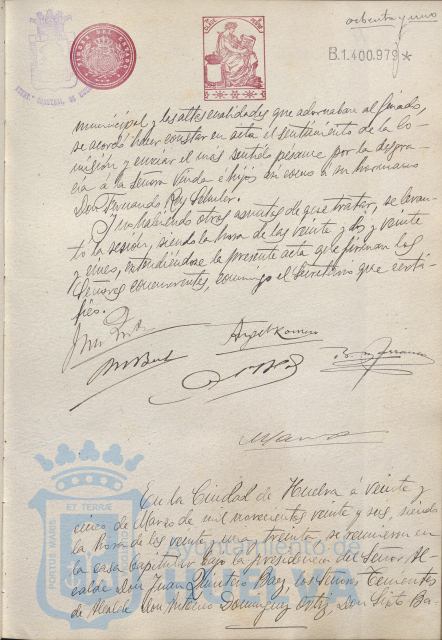 ochenta y uno
TIMBRE DEL ESTADO
B.1.400.979*
municipal, y las altas cualidades que adornaban al finado,
se acordó hacer constar en acta el sentimiento de la Co-
misión y enviar el más sentido pésame por la desgra-
cia a la Señora Viuda e hijos, así como a su hermano
Don Fernando Rey
Y no habiendo otros asuntos de que tratar, se levan-
tó la sesión, siendo la hora de las veinte y dos y veinte
y cinco, extendiéndose la presente acta que firman los
Señores concurrentes, conmigo el Secretario que certi-
fico.
Angel Romero
En la Ciudad de Huelva á veinte y
cinco de Marzo de mil novecientos veinte y seis, siendo
la hora de las veinte y una treinta, se reunieron en
la casa capitular bajo la presidencia del Señor Al-
calde Don Juan Quintero Baez, los Señores Tenientes
de Alcalde Don Antonio Dominguez Ortiz, Don Sixto Ba
PORTUS MARIS ET TERRÆ
Ayuntamiento de
HUELVA